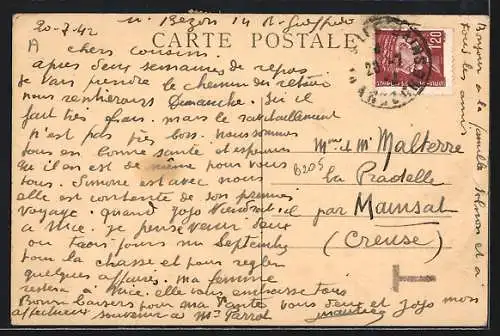 20-7-42
M. Bezon 14 R.
CARTE POSTALE
A chers cousins
apres deux semaines de repos
Je vais prendre le chemin du retour
nous rentrerons Dimanche. Ici il
fait très frais. mais le ravitaillement
n'est pas très bon. nous sommes
tous en bonne santé et esperons
qu'il en est de même pour vous
tous. Simone est avec nous
elle est contente de son premier
voyage. quand Jojo viendra
à Nice. je pense venir deux
ou trois jours en Septembre
pour la chasse et pour regler
quelques affaires. ma femme
restera à Nice. elle vous embrasse tous
Bons baisers pour ma Tante vous deux et Jojo mon
affectueux souvenir à Mme Parrot
Mme et Mr Malterre
La Pradelle
par Mainsat
(Creuse)
6205
1,20
T
Bonjour a la famille et à
tous les amis